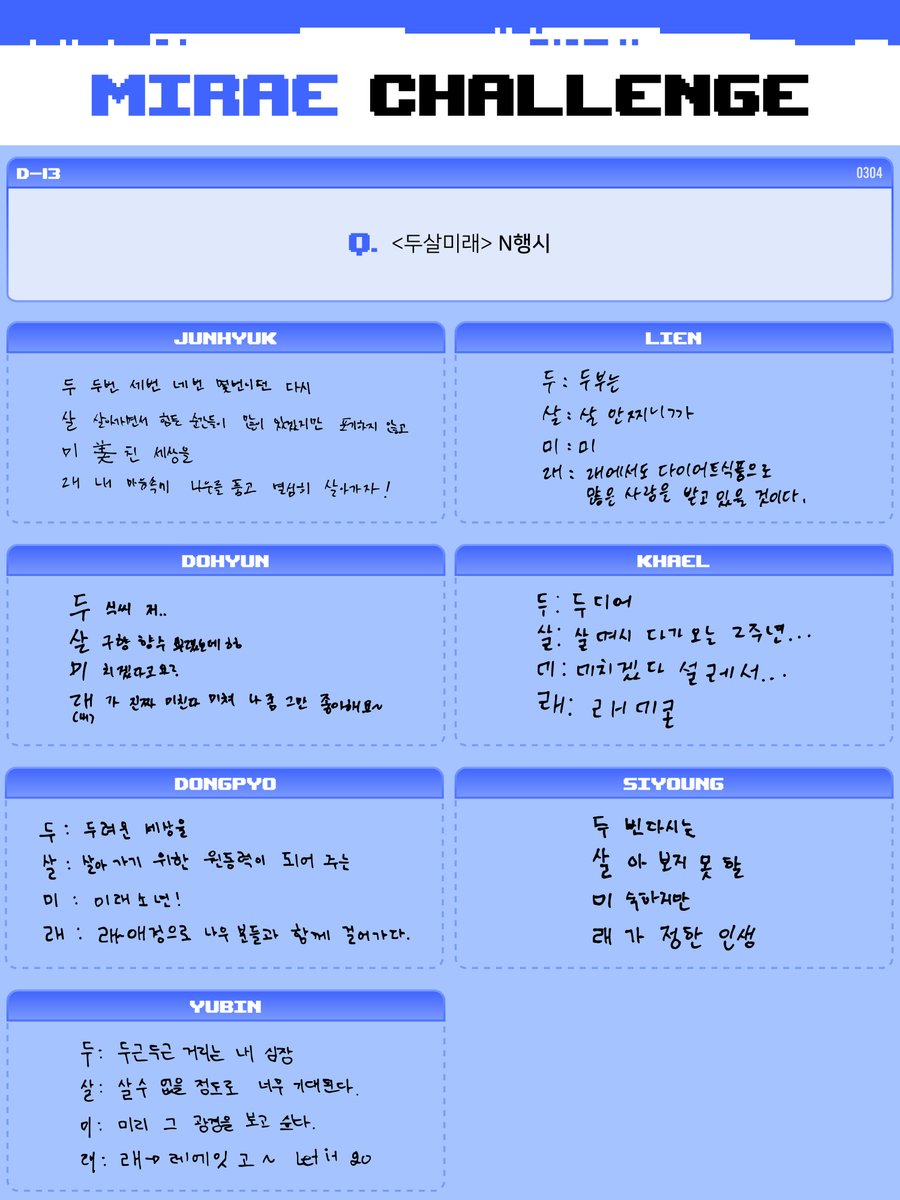 MIRAE CHALLENGE
D-13
0304
Q. <두살미래> N행시
JUNHYUK
두 두번 세번 네번 몇번이던 다시
살 살아가면서 힘든 순간들이 많이 있겠지만 포기하지 않고
미 美 친 세상을
래 내 마음속에 나우를 품고 열심히 살아가자!
LIEN
두 : 두부는
살 : 살 안찌니까
미 : 미
래 : 래에서도 다이어트식품으로
많은 사랑을 받고 있을 것이다.
DOHYUN
두 식씨 저..
살 구향 향수
미 치겠다고요?
래 가 진짜 미친다 미쳐 나 좀 그만 좋아해요~
(내)
KHAEL
두 : 두디어
살 : 살며시 다가오는 2주년...
미 : 미치겠다 설레서...
래 : 래미콘
DONGPYO
두 : 두려운 세상을
살 : 살아가기 위한 원동력이 되어 주는
미 : 미래소년!
래 : 래애정으로 나우 분들과 함께 걸어가다.
SIYOUNG
두 번다시는
살 아 보지 못 할
미 숙하지만
래 가 정한 인생
YUBIN
두 : 두근두근 거리는 내 심장
살 : 살 수 없을 정도로 너무 기대된다.
미 : 미리 그 광경을 보고 싶다.
래 : 래→레에잇고~ Let it go